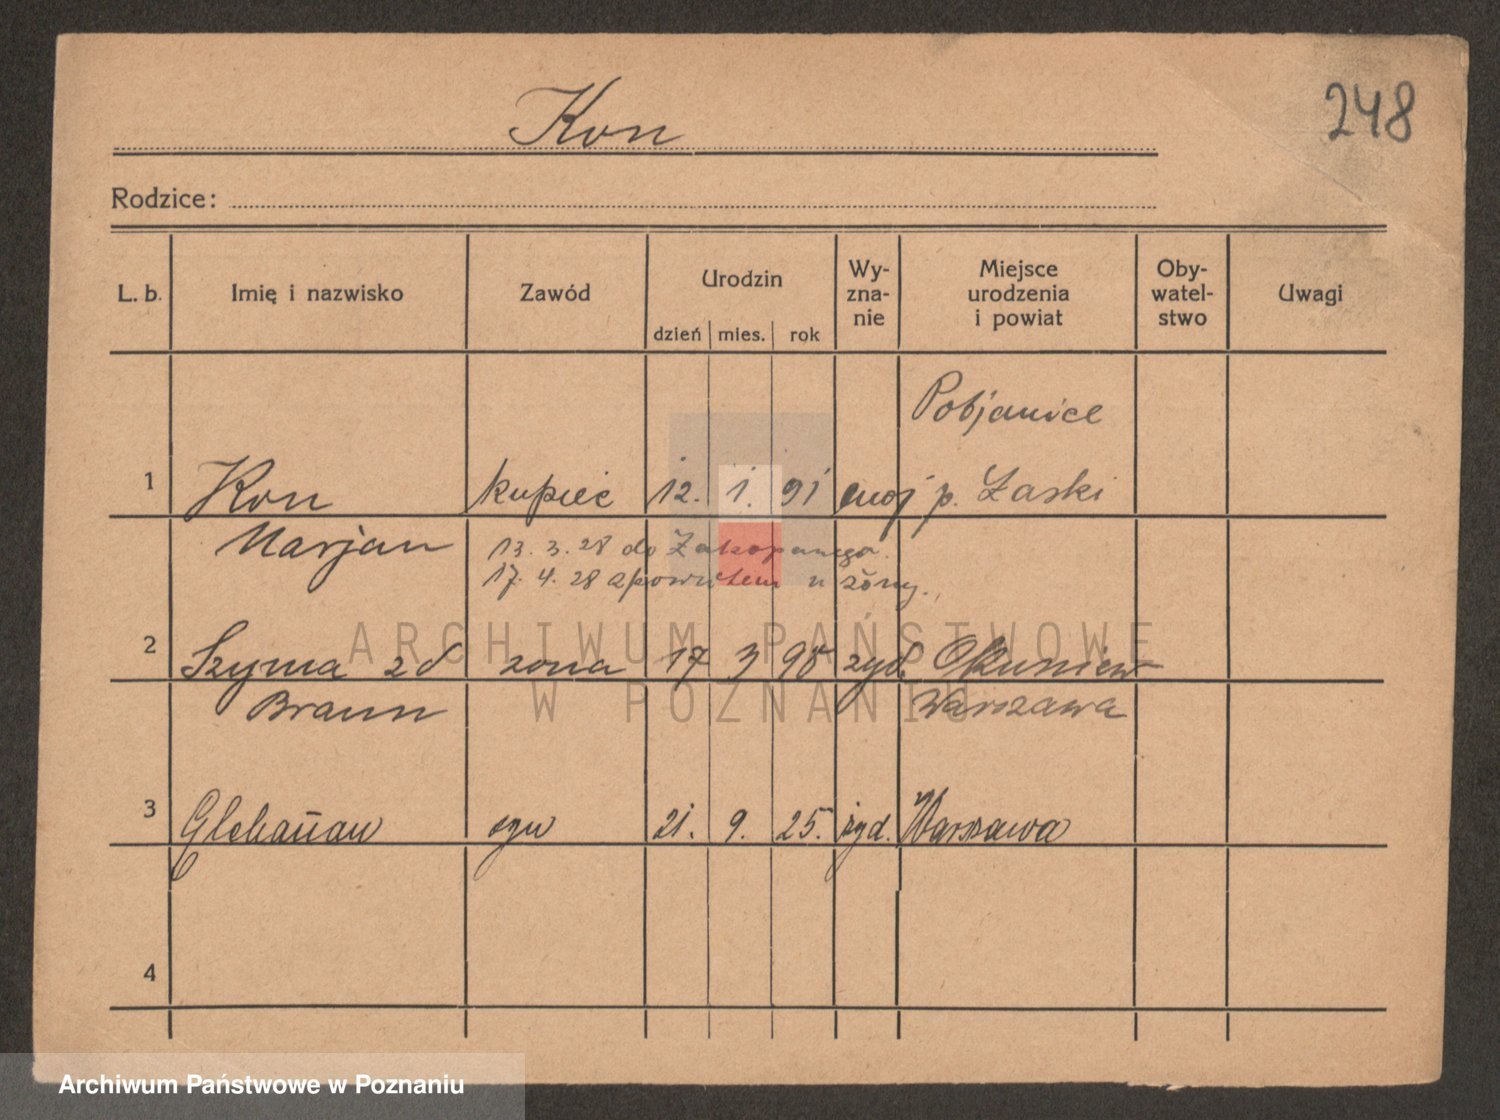 248
Kon
Rodzice:
L. b. Imię i nazwisko Zawód Urodzin dzień mies. rok Wy-zna-nie Miejsce urodzenia i powiat Oby-watel-stwo Uwagi
Pobjanice
1 Kon kupiec 12. 1. 91 moj p. Łaski
Marjan 13. 3. 28 do Zakopanego.
17. 4. 28 z powrotem u żony.
2 Szyma zd żona 17 3 98 żyd. Okuniew
Braun Warszawa
3 syn 21. 9. 25. żyd. Warszawa
4
ARCHIWUM PAŃSTWOWE
W POZNANIU
Archiwum Państwowe w Poznaniu